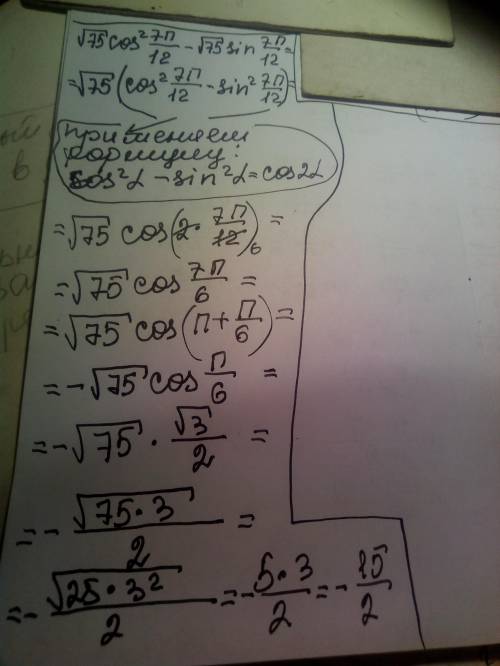 √75 cos² 7п/12 - √75 sin 7п/12 =
= √75 (cos² 7п/12 - sin² 7п/12) =
применяем
формулу:
cos²α - sin²α = cos2α
= √75 cos (2 · 7п/12) 6 =
= √75 cos 7п/6 =
= √75 cos (п + п/6) =
= -√75 cos п/6 =
= -√75 · √3/2 =
= - √75·3/2 =
= - √25·3²/2 = - 5·3/2 = - 15/2